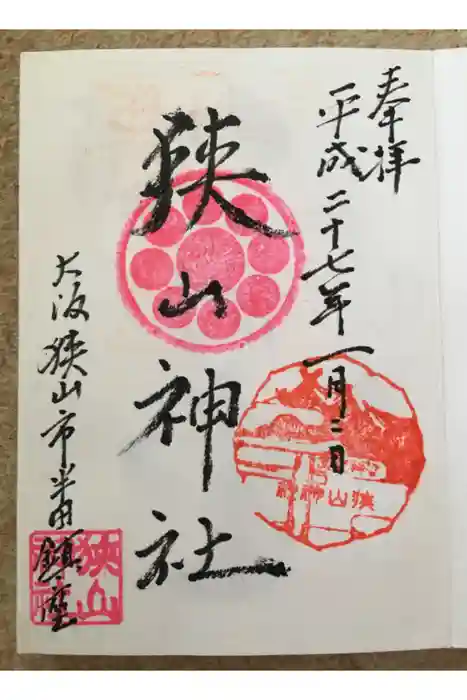 奉拝
平成二十七年一月二日
狭山神社
大阪狭山市半田鎮座
狭山神社
狭山